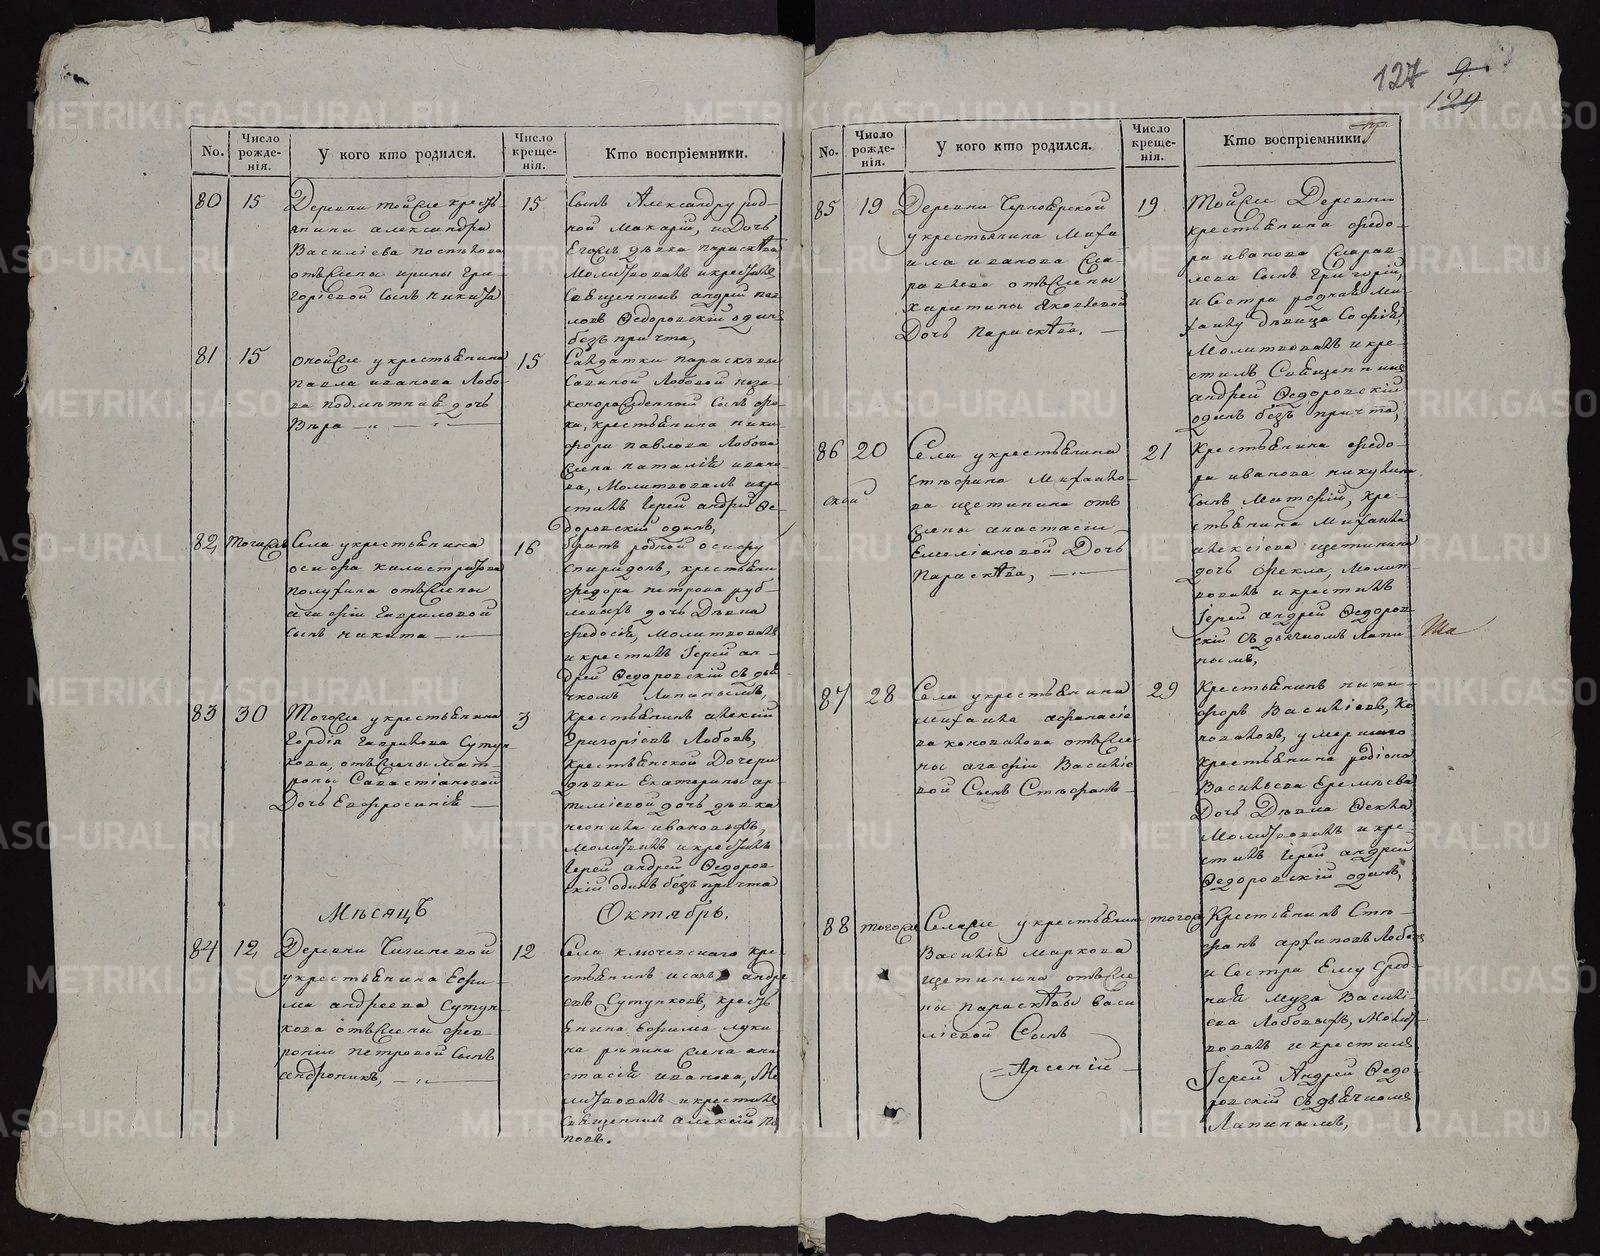 127 9.
129
No.
Число рожденія.
У кого кто родился.
Число крещенія.
Кто воспріемники.
80 15
Деревни тойже кресть
янина александра
Василіева поспѣлова
отъ жены ирины Гри-
горіевой сынъ никита
15
сынъ Александру род-
ной Макарій, и Дочь
Егора дѣвка параскѣва
Молитвовалъ и крестилъ
Священникъ андрей пав-
ловъ Ѳедоровскій одинъ
безъ причта,
81 15
оной же у крестьянина
павла иванова Лобо-
ва подмѣтная дочь
Вѣра
15
Салдатки параскѣвы
Савиной Лобовой неза-
конорожденный сынъ фо-
ка, крестьянина ники-
фора павлова Лобова
жена наталія ивано-
ва, Молитвовалъ и кре
стилъ Іерей андрей Ѳе-
доровскій одинъ,
82, тогоже
Села у крестьянина
осипа калистратова
полухина отъ жены
агафіи Гавриловой
сынъ никита
16
братъ родной осипу
спиридонъ, крестьяни
федора петрова руб-
левыхъ дочь Дѣвка
федосія, Молитвовалъ
и крестилъ Іерей ан-
дрей Ѳедоровскій съ дья
чкомъ Лапинымъ,
83 30
Тогоже у крестьянина
Гордія Гаврилова Сутун
кова, отъ жены мат-
роны Савастіановой
Дочь Евфросинія
3
крестьянинъ алексій
Григоріевъ Лобовъ,
крестьянской Дочери
дѣвки Екатерины ар-
теміевой дочь дѣвка
неонила ивановыхъ,
Молитвовалъ и крестилъ
Іерей андрей Ѳедоров-
скій одинъ безъ причта
Мѣсяцъ Октябрь.
84 12,
Деревни Чигиневой
у крестьянина Ефи-
ма андреева Сутун-
кова отъ жены фев-
роніи петровой сынъ
андроникъ,
12
Села ключевскаго кре-
стьянинъ исакъ андре
евъ Сутунковъ, кресть
янина Ефима луки-
на репина жена ана
стасія иванова, Мо
литвовалъ и крестилъ
священникъ алексій по
повъ.
No.
Число рожденія.
У кого кто родился.
Число крещенія.
Кто воспріемники.
85 19
Деревни Черноярской
у крестьянина Миха
ила иванова
отъ жены
харитины яковлевой
Дочь параскѣва,
19
тойже Деревни
крестьянина федо-
ра иванова
сынъ Григорій,
и Сестра родная Ми-
хаилу дѣвица Софія,
Молитвовалъ и кре-
стилъ Священникъ
андрей Ѳедоровскій
одинъ безъ причта,
86 20
Села у крестьянина
стефана Михайло-
ва щетинина отъ
жены анастасіи
Емеліановой Дочь
параскѣва,
21
крестьянина федо-
ра иванова никулина
сынъ Матфій, кре-
стьянина Михаила
алексіева щетинина
дочь фекла, молит-
вовалъ и крестилъ
Іерей андрей Ѳедоров-
скій съ дьячкомъ Лапи-
нымъ,
87 28
Села у крестьянина
михаила афанасіе
ва коновалова отъ же
ны агафіи Василіе
вой Сынъ Стефанъ
29
крестьянинъ ники-
форъ Василіевъ, ко
новаловъ, умершаго
крестьянина родіона
Васильева Еремѣева
Дочь Дѣвка Ѳекла
молитвовалъ и кре-
стилъ Іерей андрей
Ѳедоровскій одинъ,
88 тогоже
Села же у крестьянина
Василія Маркова
щетинина отъ же
ны параскѣвы васи
ліевой Сынъ
Арсеній
тогож
крестьянинъ Сте-
фанъ архиповъ Лобовъ
и Сестра Ему срод-
ная муза Василі-
ева Лобовыхъ, Молит-
вовалъ и крестилъ
Іерей Андрей Ѳедо-
ровскій съ дьячкомъ
Лапинымъ,
METRIKI.GASO-URAL.RU